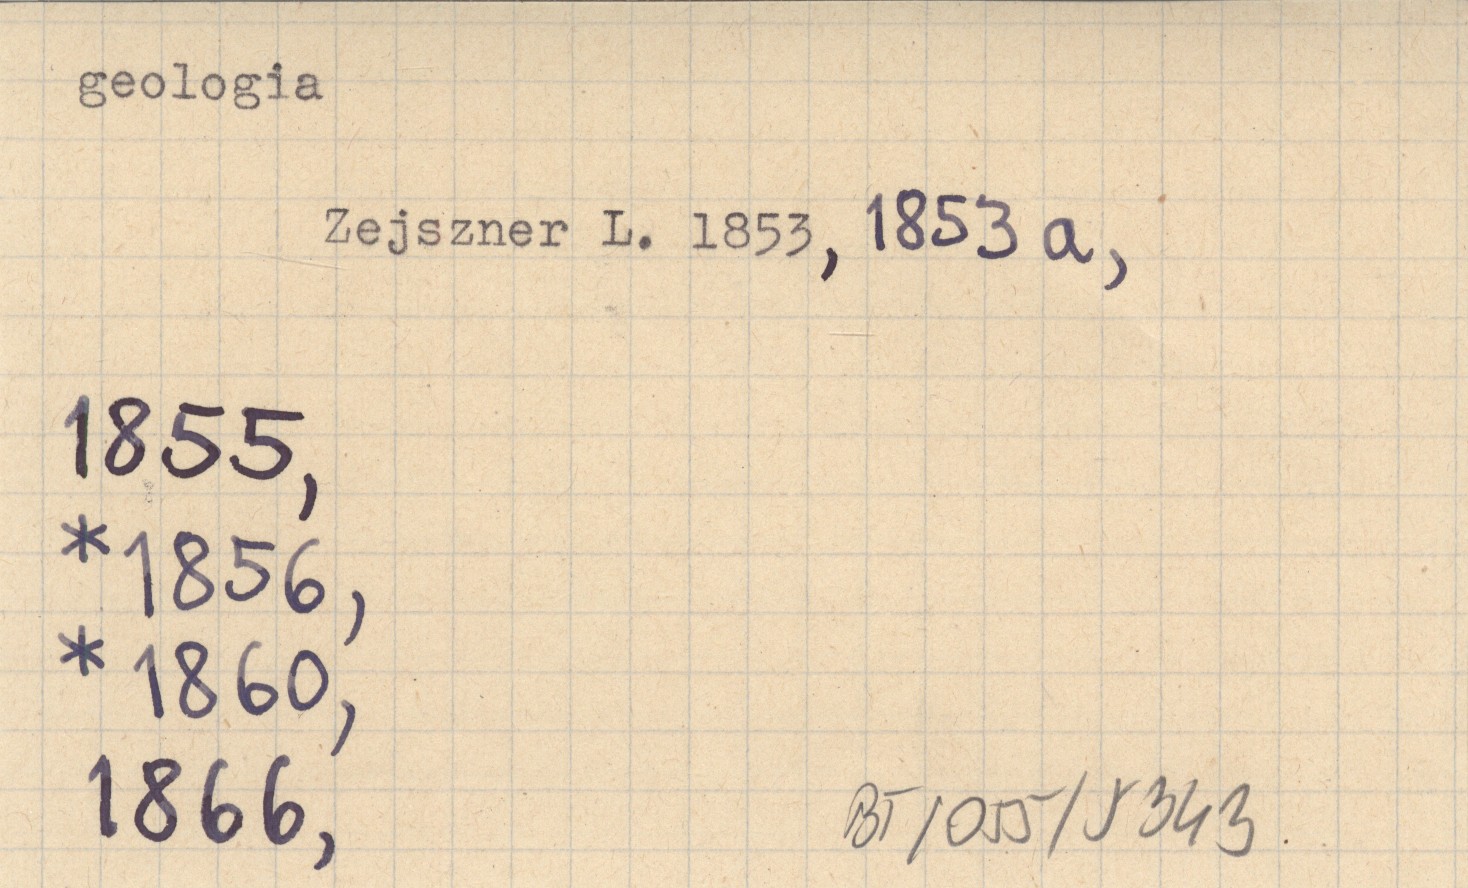 geologia
Zejszner L. 1853, 1853 a,
1855,
*1856,
*1860,
1866,
BT/055/5343